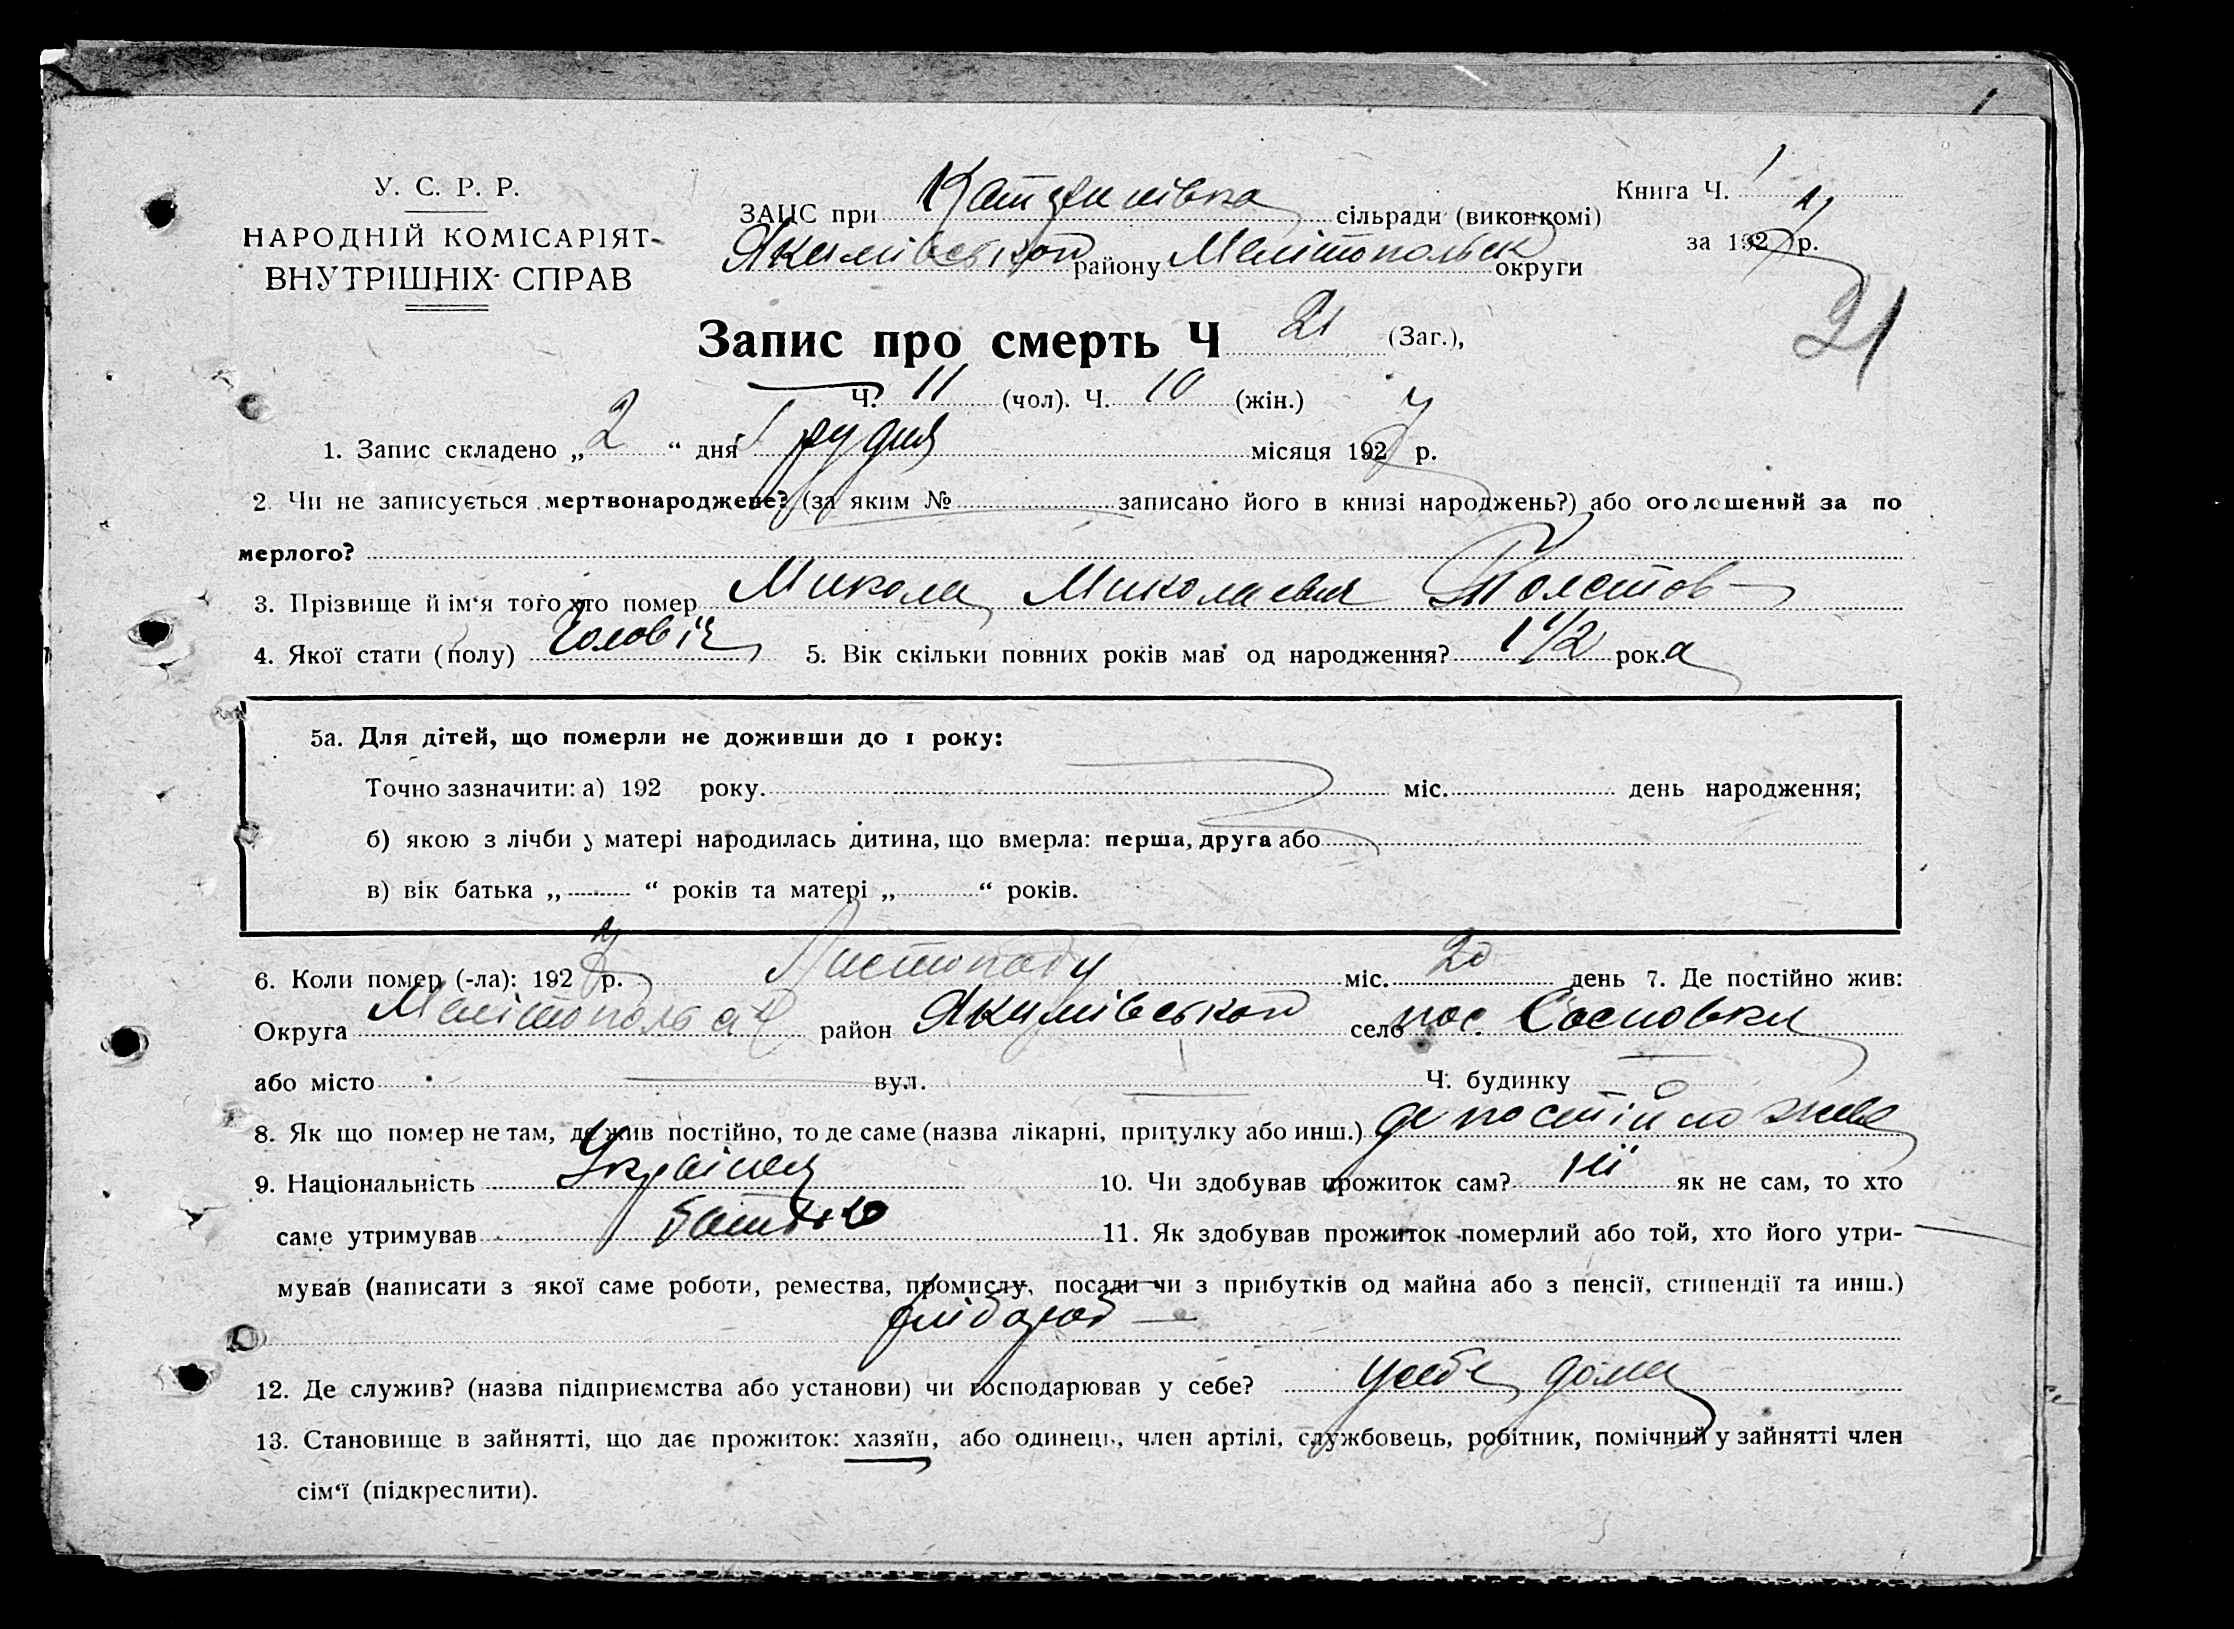 У. С. Р. Р.
НАРОДНІЙ КОМІСАРІЯТ
ВНУТРІШНІХ СПРАВ
ЗАЦС при сільради (виконкомі)
Якимівського району Мелітопольск округи
Книга Ч. 1
за 1927 р.
21
Запис про смерть Ч 21 (Заг.),
Ч. 11 (чол). Ч. 10 (жін.)
1. Запис складено „ 2 “ дня Грудня місяця 1927 р.
2. Чи не записується мертвонароджене? (за яким № записано його в книзі народжень?) або оголошений за по
мерлого?
3. Прізвище й ім‘я того хто помер Микола Миколаевич Толстов
4. Якої стати (полу) Чоловіч 5. Вік скільки повних років мав од народження? 1 1/2 рок.а
5а. Для дітей, що померли не доживши до 1 року:
Точно зазначити: а) 192 року. міс. день народження;
б) якою з лічби у матері народилась дитина, що вмерла: перша, друга або
в) вік батька „ “ років та матері „ “ років.
6. Коли помер (-ла): 1927 р. Листопаду міс. 20 день 7. Де постійно жив:
Округа район Якимівського село пос. Сосновка
або місто вул. Ч. будинку
8. Як що помер не там, де жив постійно, то де саме (назва лікарні, притулку або инш.) де постійно жив
9. Національність 10. Чи здобував прожиток сам? ні як не сам, то хто
саме утримував батько 11. Як здобував прожиток померлий або той, хто його утри-
мував (написати з якої саме роботи, ремества, промислу, посади чи з прибутків од майна або з пенсії, стипендії та инш.)
хлібороб
12. Де служив? (назва підприємства або установи) чи господарював у себе? у себе дома
13. Становище в зайнятті, що дає прожиток: хазяїн, або одинець, член артілі, службовець, робітник, помічний у зайнятті член
сім‘ї (підкреслити).